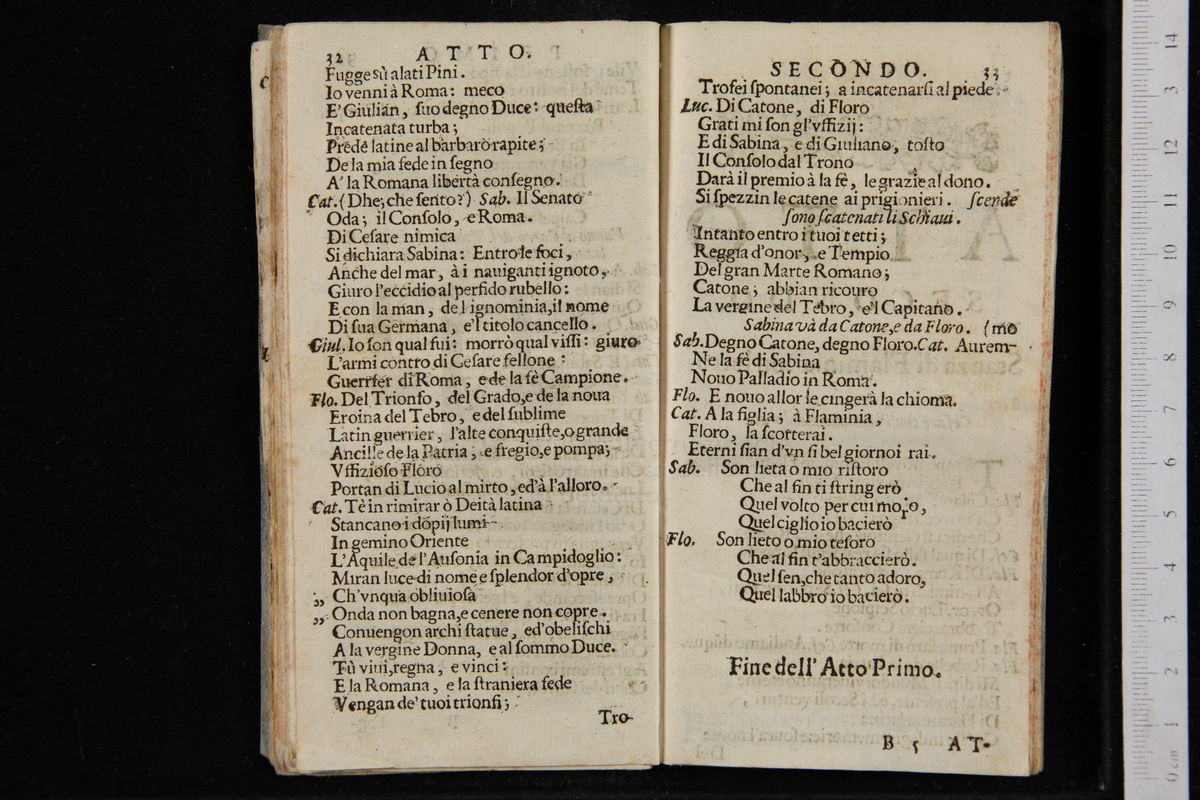 32 ATTO.
Fugge sù alati Pini.
Io venni à Roma: meco
E' Giulian, ſuo degno Duce: queſta
Incatenata turba;
Prede latine al barbaro rapite;
De la mia fede in ſegno
A' la Romana libertà conſegno.
Cat. (Dhe; che ſento?) Sab. Il Senato
Oda; il Conſolo, e Roma.
Di Ceſare nimica
Si dichiara Sabina: Entro le foci,
Anche del mar, à i nauiganti ignoto,
Giuro l'eccidio al perfido rubello:
E con la man, del ignominia, il nome
Di ſua Germana, e'l titolo cancello.
Giul. Io ſon qual fui: morrò qual viſſi: giuro
L'armi contro di Ceſare fellone:
Guerrier di Roma, e de la fè Campione.
Flo. Del Trionfo, del Grado, e de la noua
Eroina del Tebro, e del ſublime
Latin guerrier, l'alte conquiſte, o grande
Ancille de la Patria, e fregio, e pompa;
Vffizioſo Floro
Portan di Lucio al mirto, ed'à l'alloro.
Cat. Tè in rimirar ò Deità latina
Stancano i dopij lumi
In gemino Oriente
L'Aquile de l'Auſonia in Campidoglio:
Miran luce di nome e ſplendor d'opre,
„ Ch'vnqua obliuioſa
„ Onda non bagna, e cenere non copre.
Conuengon archi ſtatue, ed'obeliſchi
A la vergine Donna, e al ſommo Duce.
Tù viui, regna, e vinci:
E la Romana, e la ſtraniera fede
Vengan de' tuoi trionfi;
Tro-
SECONDO. 33
Trofei ſpontanei; a incatenarſi al piede
Luc. Di Catone, di Floro
Grati mi ſon gl'vffizij:
E di Sabina, e di Giuliano, toſto
Il Conſolo dal Trono
Darà il premio à la fè, le grazie al dono.
Si ſpezzin le catene ai prigionieri. ſcende
ſono ſcatenati li Schiaui.
Intanto entro i tuoi tetti;
Reggia d'onor, e Tempio
Del gran Marte Romano;
Catone; abbian ricouro
La vergine del Tebro, e'l Capitano.
Sabina và da Catone, e da Floro. (mo
Sab. Degno Catone, degno Floro. Cat. Aurem-
Ne la fè di Sabina
Nouo Palladio in Roma.
Flo. E nouo allor le cingerà la chioma.
Cat. A la figlia; à Flaminia,
Floro, la ſcorterai.
Eterni ſian d'vn ſi bel giorno i rai.
Sab. Son lieta o mio riſtoro
Che al fin ti ſtringerò
Quel volto per cui moro,
Quel ciglio io bacierò
Flo. Son lieto o mio teſoro
Che al fin t'abbraccierò.
Quel ſen, che tanto adoro,
Quel labbro io bacierò.
Fine dell' Atto Primo.
B 5 AT-